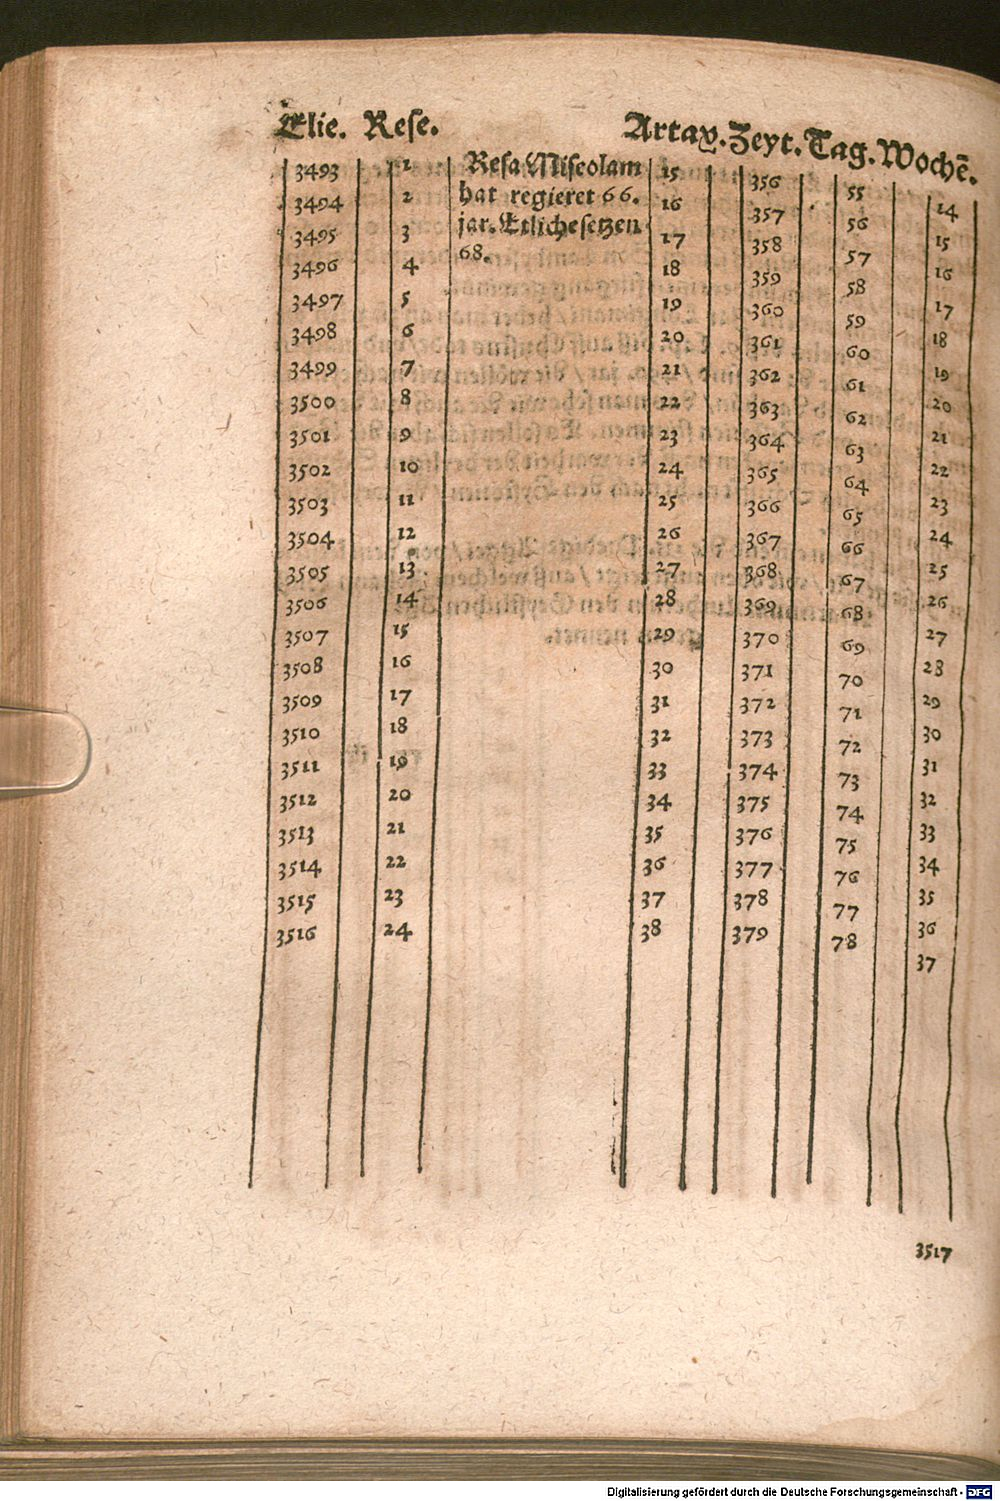 Elie. Rese. Artax. Zeyt. Tag. Wochē.
3493 1 Resa Misciolam 15 356 55 14
3494 2 hat regieret 66. 16 357 56 15
3495 3 jar. Etliche setzen 17 358 57 16
3496 4 68. 18 359 58 17
3497 5 19 360 59 18
3498 6 20 361 60 19
3499 7 21 362 61 20
3500 8 22 363 62 21
3501 9 23 364 63 22
3502 10 24 365 64 23
3503 11 25 366 65 24
3504 12 26 367 66 25
3505 13 27 368 67 26
3506 14 28 369 68 27
3507 15 29 370 69 28
3508 16 30 371 70 29
3509 17 31 372 71 30
3510 18 32 373 72 31
3511 19 33 374 73 32
3512 20 34 375 74 33
3513 21 35 376 75 34
3514 22 36 377 76 35
3515 23 37 378 77 36
3516 24 38 379 78 37
3517
Digitalisierung gefördert durch die Deutsche Forschungsgemeinschaft - DFG